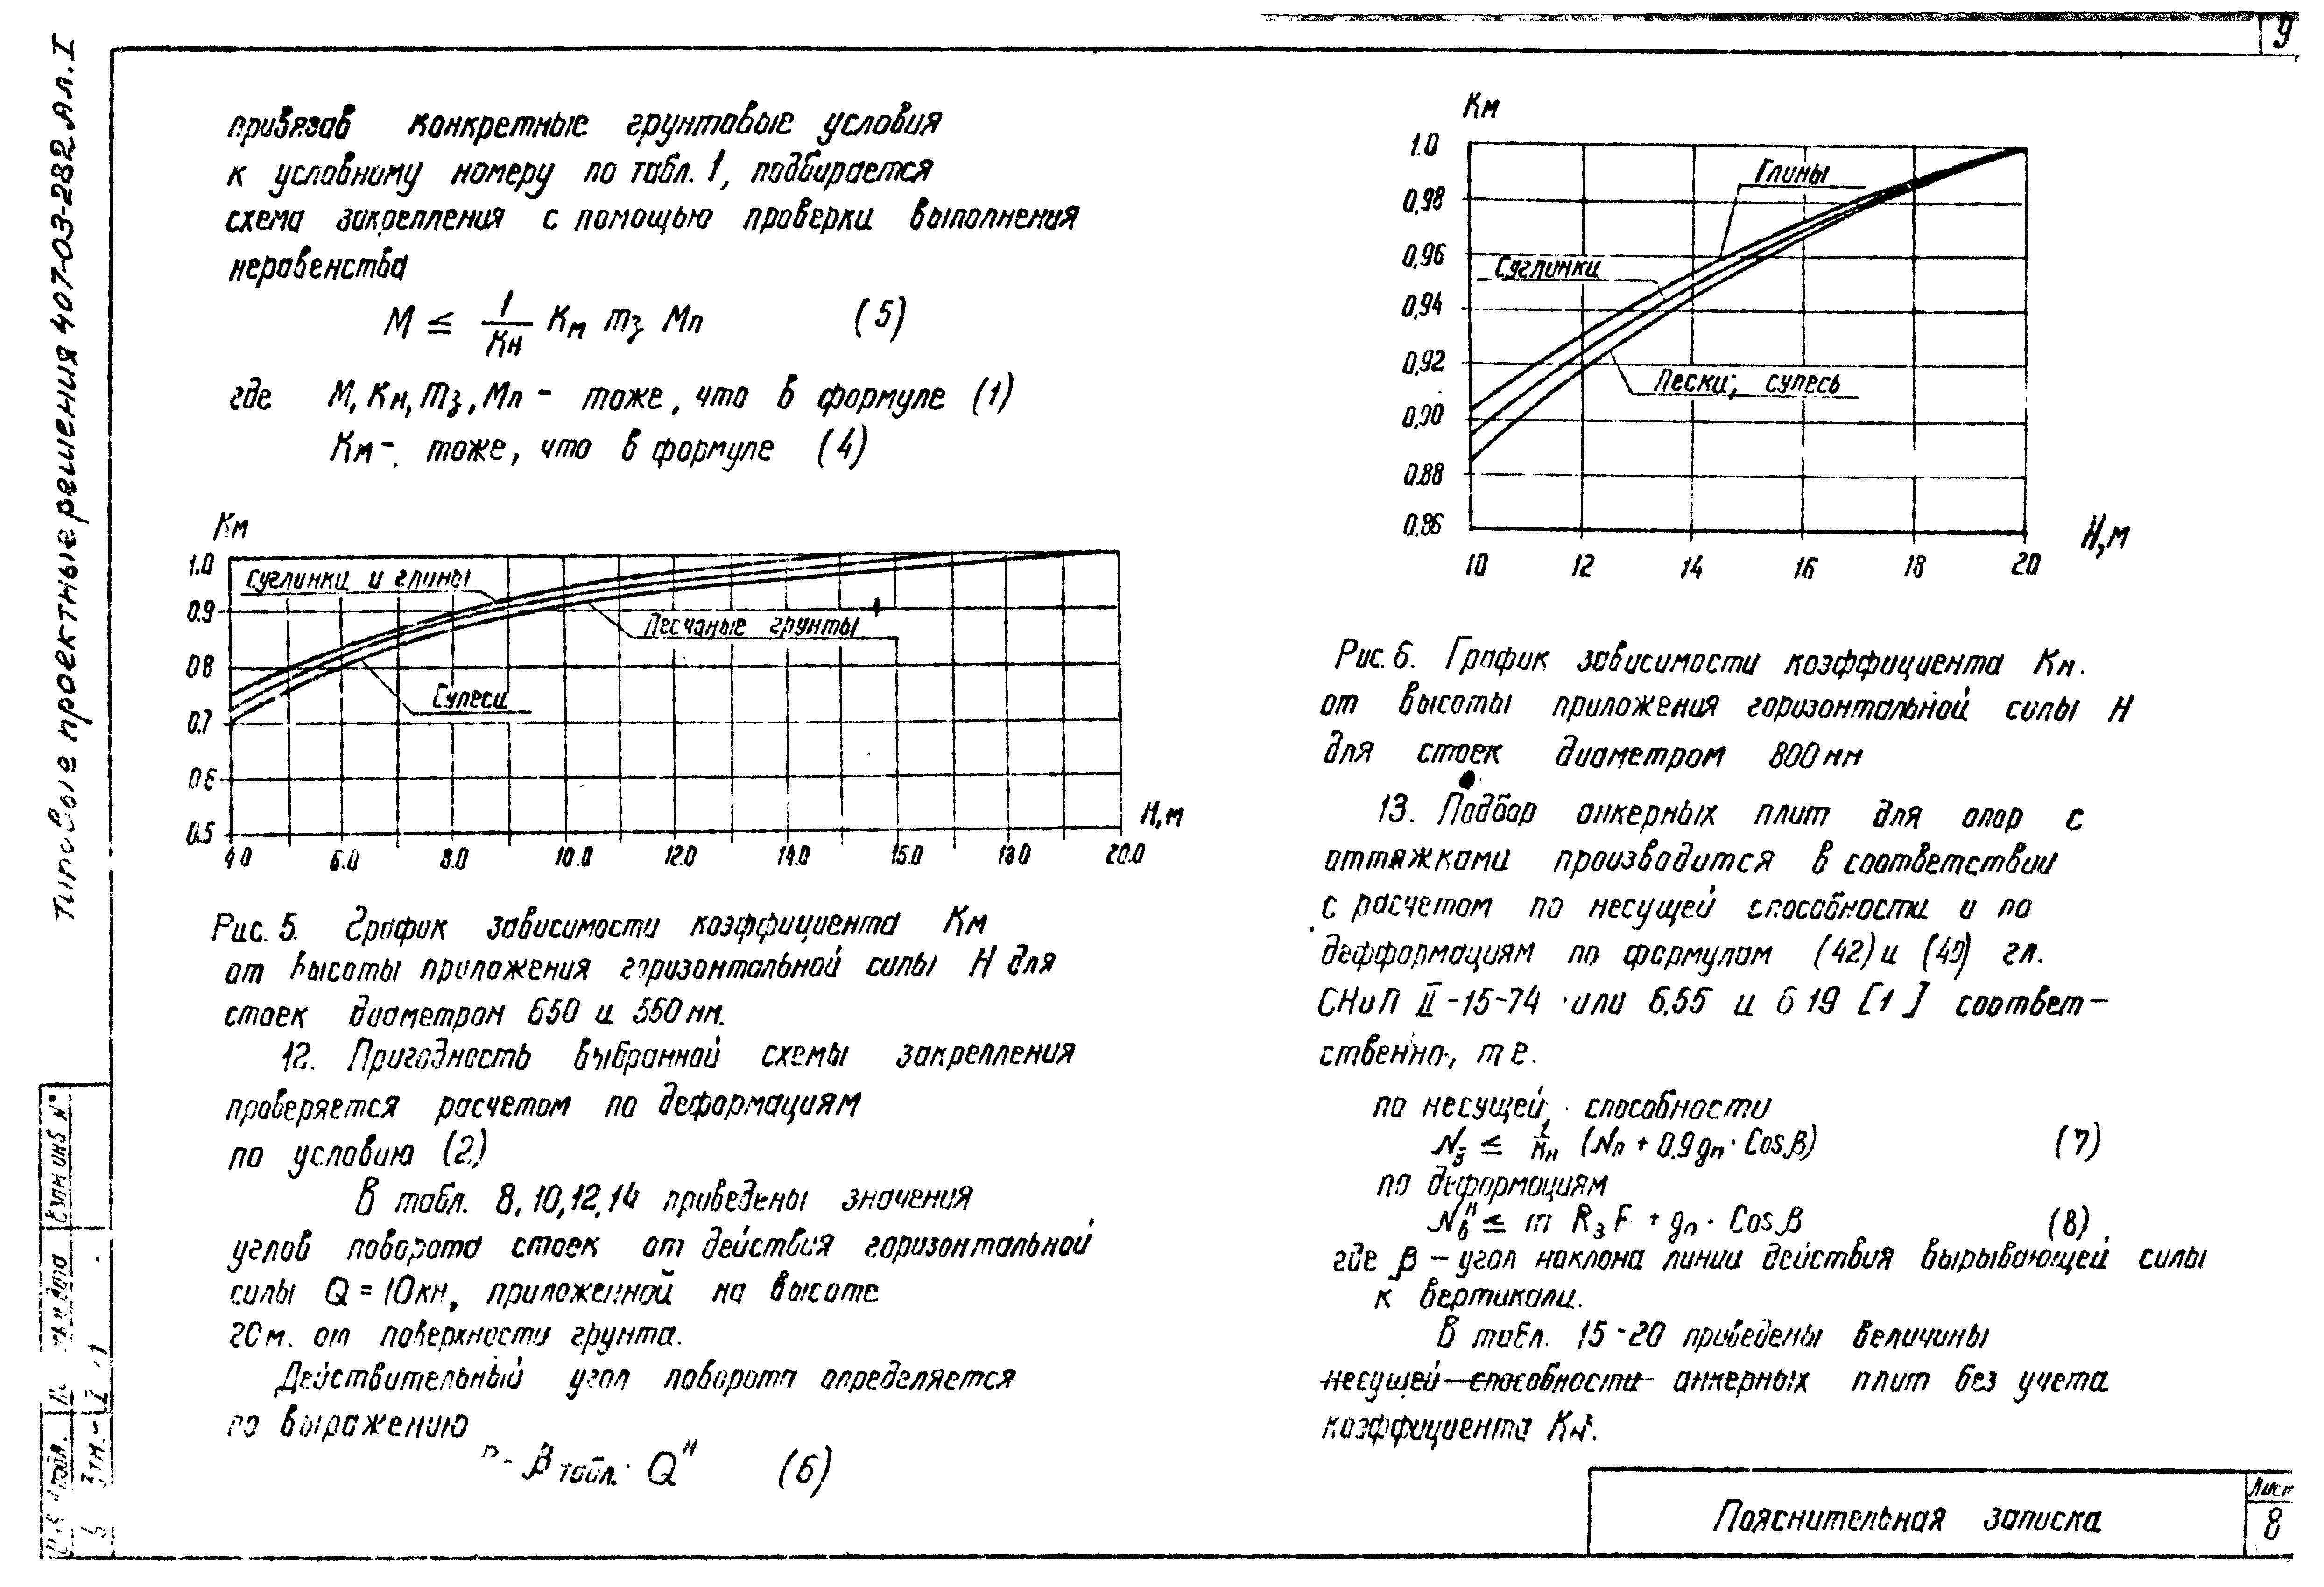 9
Типовые проектные решения 407-03-282 Ал. I
привязав конкретные грунтовые условия
к условному номеру по табл. 1, подбирается
схема закрепления с помощью проверки выполнения
неравенства
M ≤ 1/Kн Kм mз Mп (5)
где M, Kн, mз, Mп - тоже, что в формуле (1)
Kм - тоже, что в формуле (4)
Kм
1.0
0.9
0.8
0.7
0.6
0.5
суглинки и глины
Песчаные грунты
Супеси
H, м
4.0 6.0 8.0 10.0 12.0 14.0 16.0 18.0 20.0
Рис. 5. График зависимости коэффициента Kм
от высоты приложения горизонтальной силы H для
стоек диаметром 650 и 560 мм.
12. Пригодность выбранной схемы закрепления
проверяется расчетом по деформациям
по условию (2)
В табл. 8, 10, 12, 14 приведены значения
углов поворота стоек от действия горизонтальной
силы Q = 10кн, приложенной на высоте
20м. от поверхности грунта.
Действительный угол поворота определяется
по выражению
β табл. · Qн (6)
Kм
1.0
0,98
0,96
0,94
0,92
0,90
0.88
0.86
Глины
Суглинки
Пески; супесь
H, м
10 12 14 16 18 20
Рис. 6. График зависимости коэффициента Kн.
от высоты приложения горизонтальной силы H
для стоек диаметром 800 мм
13. Подбор анкерных плит для опор с
оттяжками производится в соответствии
с расчетом по несущей способности и по
дефформациям по формулам (42) и (49) гл.
СНиП II-15-74 или 6,55 и 6 19 [1] соответ-
ственно, т е.
по несущей способности
Nз ≤ 1/Kн (Nп + 0.9gп · Cosβ) (7)
по деформациям
Nвн ≤ m R3 F + gп · Cosβ (8)
где β - угол наклона линии действия вырывающей силы
к вертикали.
В табл. 15-20 приведены величины
несущей способности анкерных плит без учета
коэффициента Kн.
Взам инв N°
дата
подл.
Пояснительная записка
Лист
8